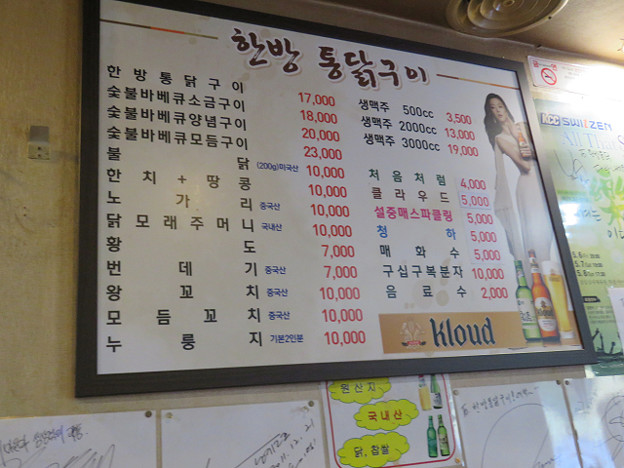 한방 통닭구이
한방통닭구이 17,000
숯불바베큐소금구이 18,000
숯불바베큐양념구이 20,000
숯불바베큐모듬구이 23,000
불닭 (200g)미국산 10,000
한치+땅콩 10,000
노가리 중국산 10,000
닭모래주머니 국내산 10,000
황도 7,000
번데기 중국산 7,000
왕꼬치 중국산 10,000
모듬꼬치 중국산 10,000
누룽지 기본2인분 10,000
생맥주 500cc 3,500
생맥주 2000cc 13,000
생맥주 3000cc 19,000
처음처럼 4,000
클라우드 5,000
설중매스파클링 5,000
청하 5,000
매화수 5,000
구십구복분자 10,000
음료수 2,000
Kloud
KCC SWITZEN
원산지
국내산
닭, 찹쌀